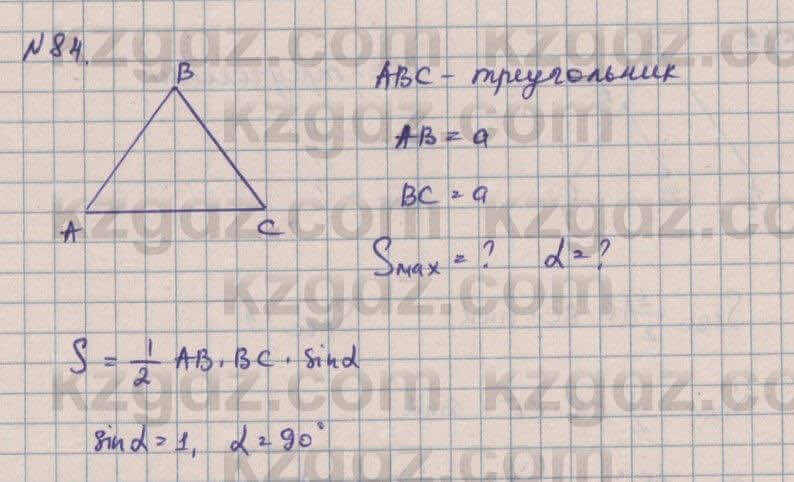 N84.
B
A
C
ABC - треугольник
AB = a
BC = a
Smax = ? α = ?
S = 1/2 AB · BC · sinα
sinα = 1, α = 90°
kzgdz.com kzgdz.com
kzgdz.com
kzgdz.com kzgdz.com
kzgdz.com
kzgdz.com kzgdz.com
kzgdz.com